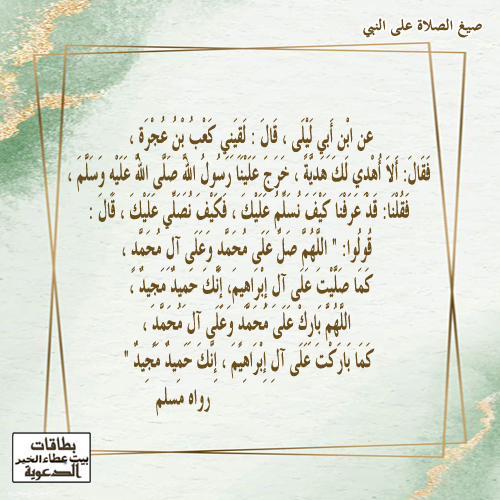 صيغ الصلاة على النبي
عَنِ ابْنِ أَبِي لَيْلَى ، قَالَ : لَقِيَنِي كَعْبُ بْنُ عُجْرَةَ ،
فَقَالَ: أَلَا أُهْدِي لَكَ هَدِيَّةً ، خَرَجَ عَلَيْنَا رَسُولُ اللَّهِ صَلَّى اللَّهُ عَلَيْهِ وَسَلَّمَ ،
فَقُلْنَا: قَدْ عَرَفْنَا كَيْفَ نُسَلِّمُ عَلَيْكَ ، فَكَيْفَ نُصَلِّي عَلَيْكَ ، قَالَ :
قُولُوا: " اللَّهُمَّ صَلِّ عَلَى مُحَمَّدٍ وَعَلَى آلِ مُحَمَّدٍ ،
كَمَا صَلَّيْتَ عَلَى آلِ إِبْرَاهِيمَ، إِنَّكَ حَمِيدٌ مَجِيدٌ ،
اللَّهُمَّ بَارِكْ عَلَى مُحَمَّدٍ وَعَلَى آلِ مُحَمَّدٍ ،
كَمَا بَارَكْتَ عَلَى آلِ إِبْرَاهِيمَ ، إِنَّكَ حَمِيدٌ مَجِيدٌ "
رواه مسلم
بطاقات
بيت عطاء الخير
الدعوية